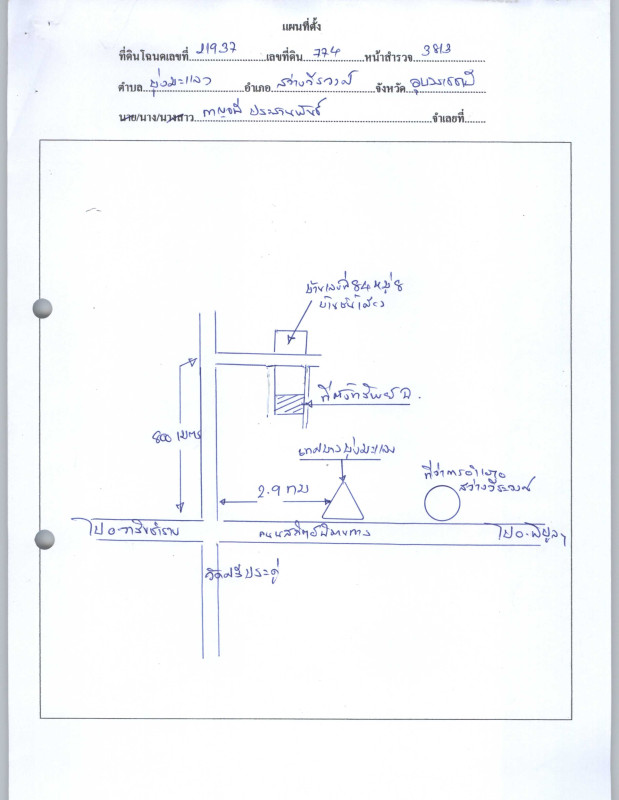 แผนที่ตั้ง
ที่ดินโฉนดเลขที่ 21937 เลขที่ดิน 774 หน้าสำรวจ 3813
ตำบล บุ่งมะแลง อำเภอ สว่างวีรวงศ์ จังหวัด อุบลราชธานี
นาย/นาง/นางสาว ประสานพันธ์ จำเลยที่
บ้านเลขที่ 84 หมู่ 8
ที่ตั้งทรัพย์
800 เมตร
เทศบาลบุ่งมะแลง
ที่ว่าการอำเภอ
สว่างวีรวงศ์
2.9 กม
ไป อ.วารินชำราบ ถนนสถิตย์นิมานกาล ไป อ.พิบูลฯ
วัดศรีประดู่